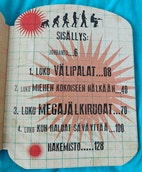 SISÄLLYS:
JOHDANTO...6
1. LUKU VÄLIPALAT...08
2. LUKU MIEHEN KOKOISEEN NÄLKÄÄN...40
3. LUKU MEGAJÄLKIRUOAT...76
4. LUKU KUN HALUAT SÄVÄYTTÄÄ...100
HAKEMISTO.....128